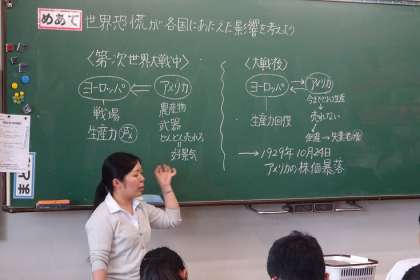 めあて
世界恐慌が各国にあたえた影響を考えよう
〈第一次世界大戦中〉
ヨーロッパ
アメリカ
戦場
生産力 減
農産物
武器
どんどん売れる
好景気
〈大戦後〉
ヨーロッパ
アメリカ
生産力回復
売れない
倒産→失業者増
1929年10月24日
アメリカの株価暴落
まと